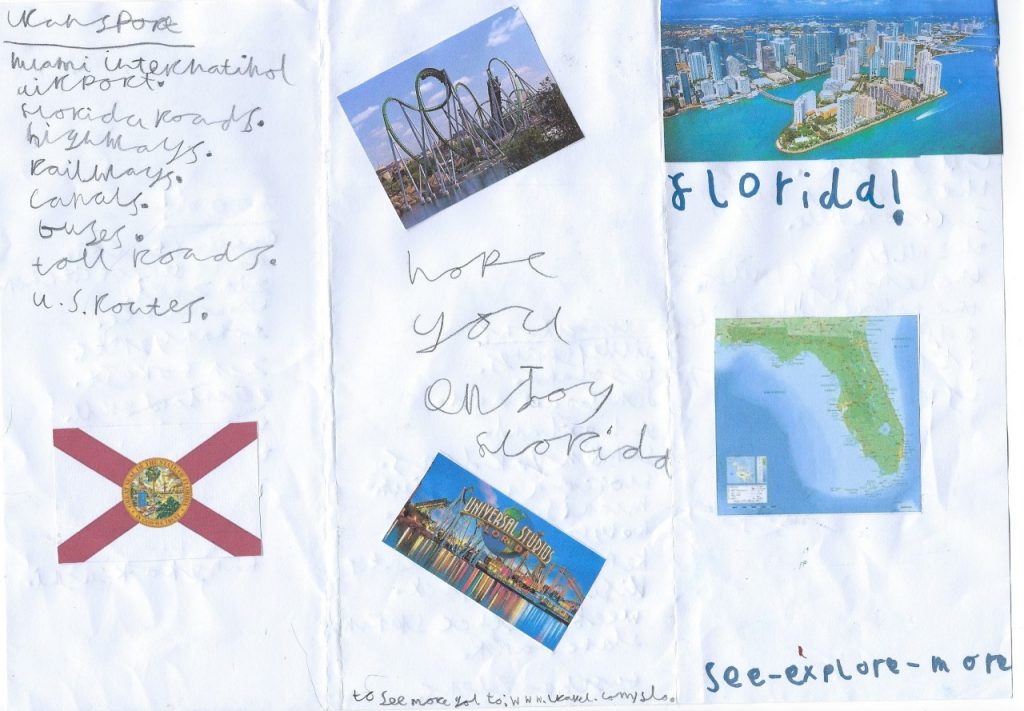 transport
miami internatihol
airport.
florida roads.
highways.
Railways.
canals.
buses.
toll roads.
u.s. Routes.
hope
you
enjoy
florida
UNIVERSAL STUDIOS
FLORIDA
to see more go to: www.
florida!
see-explore-more